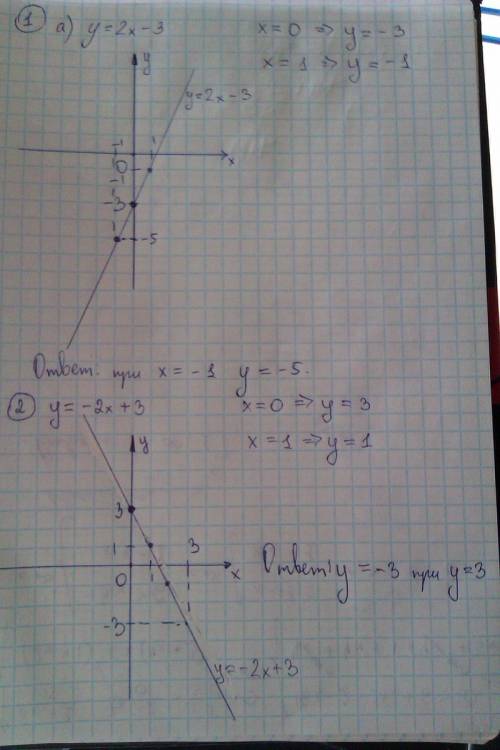 1 а) y=2x-3
x=0 => y=-3
x=1 => y=-1
y
y=2x-3
1
x
0
-1
-3
-5
Ответ: при x=-1 y=-5.
2 y=-2x+3
x=0 => y=3
x=1 => y=1
y
3
1
3
0
x
Ответ: y=-3 при y=3
-3
y=-2x+3